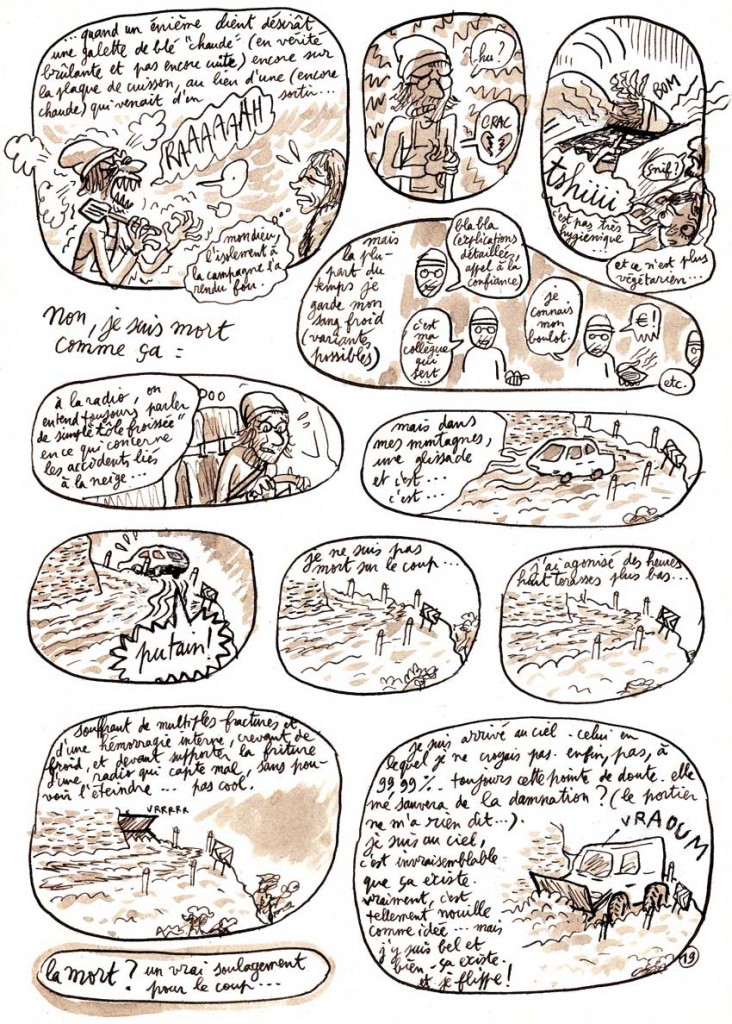 ...quand un énième client désirât
une galette de blé "chaude" (en vérité
brûlante et pas encore cuite) encore sur
la plaque de cuisson, au lieu d'une (encore
chaude) qui venait d'en sortir...
RAAAAAAH
mondieu,
l'isolement à
la campagne l'a
rendu fou.
hu?
CRAC
BOM
tshiiii
(snif?)
c'est pas très
hygiénique...
et ce n'est plus
végétarien...
Non, je suis mort
comme ça :
mais
la plu-
part du
temps je
garde mon
sang froid
(variantes
possibles)
blabla
(explications
détaillées,
appel à la
confiance)
c'est
ma
collègue
qui
sert...
je
connais
mon
boulot.
€!
etc.
à la radio, on
entend toujours parler
de simple "tôle froissée"
en ce qui concerne
les accidents liés
à la neige...
mais dans
mes montagnes,
une glissade
et c'est...
c'est...
putain!
je ne suis pas
mort sur le coup...
j'ai agonisé des heures
huit terasses plus bas...
souffrant de multiples fractures et
d'une hémorragie interne, crevant de
froid, et devant supporter la friture
d'une radio qui capte mal, sans pou-
voir l'éteindre... pas cool.
VRRRRR
je suis arrivé au ciel - celui en
lequel je ne croyais pas. enfin, pas, à
99,99%. toujours cette pointe de doute. elle
me sauvera de la damnation? (le portier
ne m'a rien dit...).
VRAOUM
je suis au ciel,
c'est invraisemblable
que ça existe.
vraiment, c'est
tellement nouille
comme idée... mais
j'y suis bel et
bien - ça existe.
et je flippe!
la mort? un vrai soulagement
pour le coup...
19